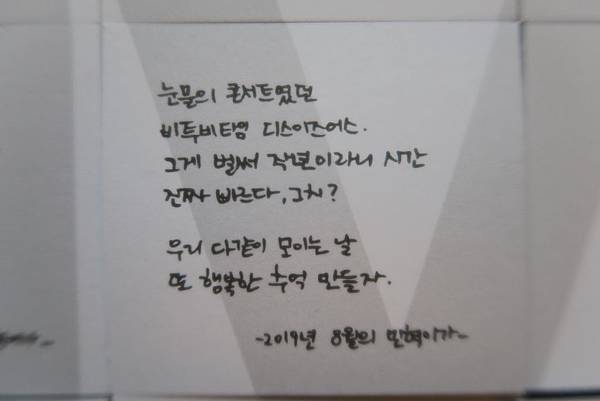 눈물의 콘서트였던
비투비타임 디스이즈어스.
그게 벌써 작년이라니 시간
진짜 빠르다, 그치?
우리 다같이 모이는 날
또 행복한 추억 만들자.
-2019년 8월의 민혁이가-